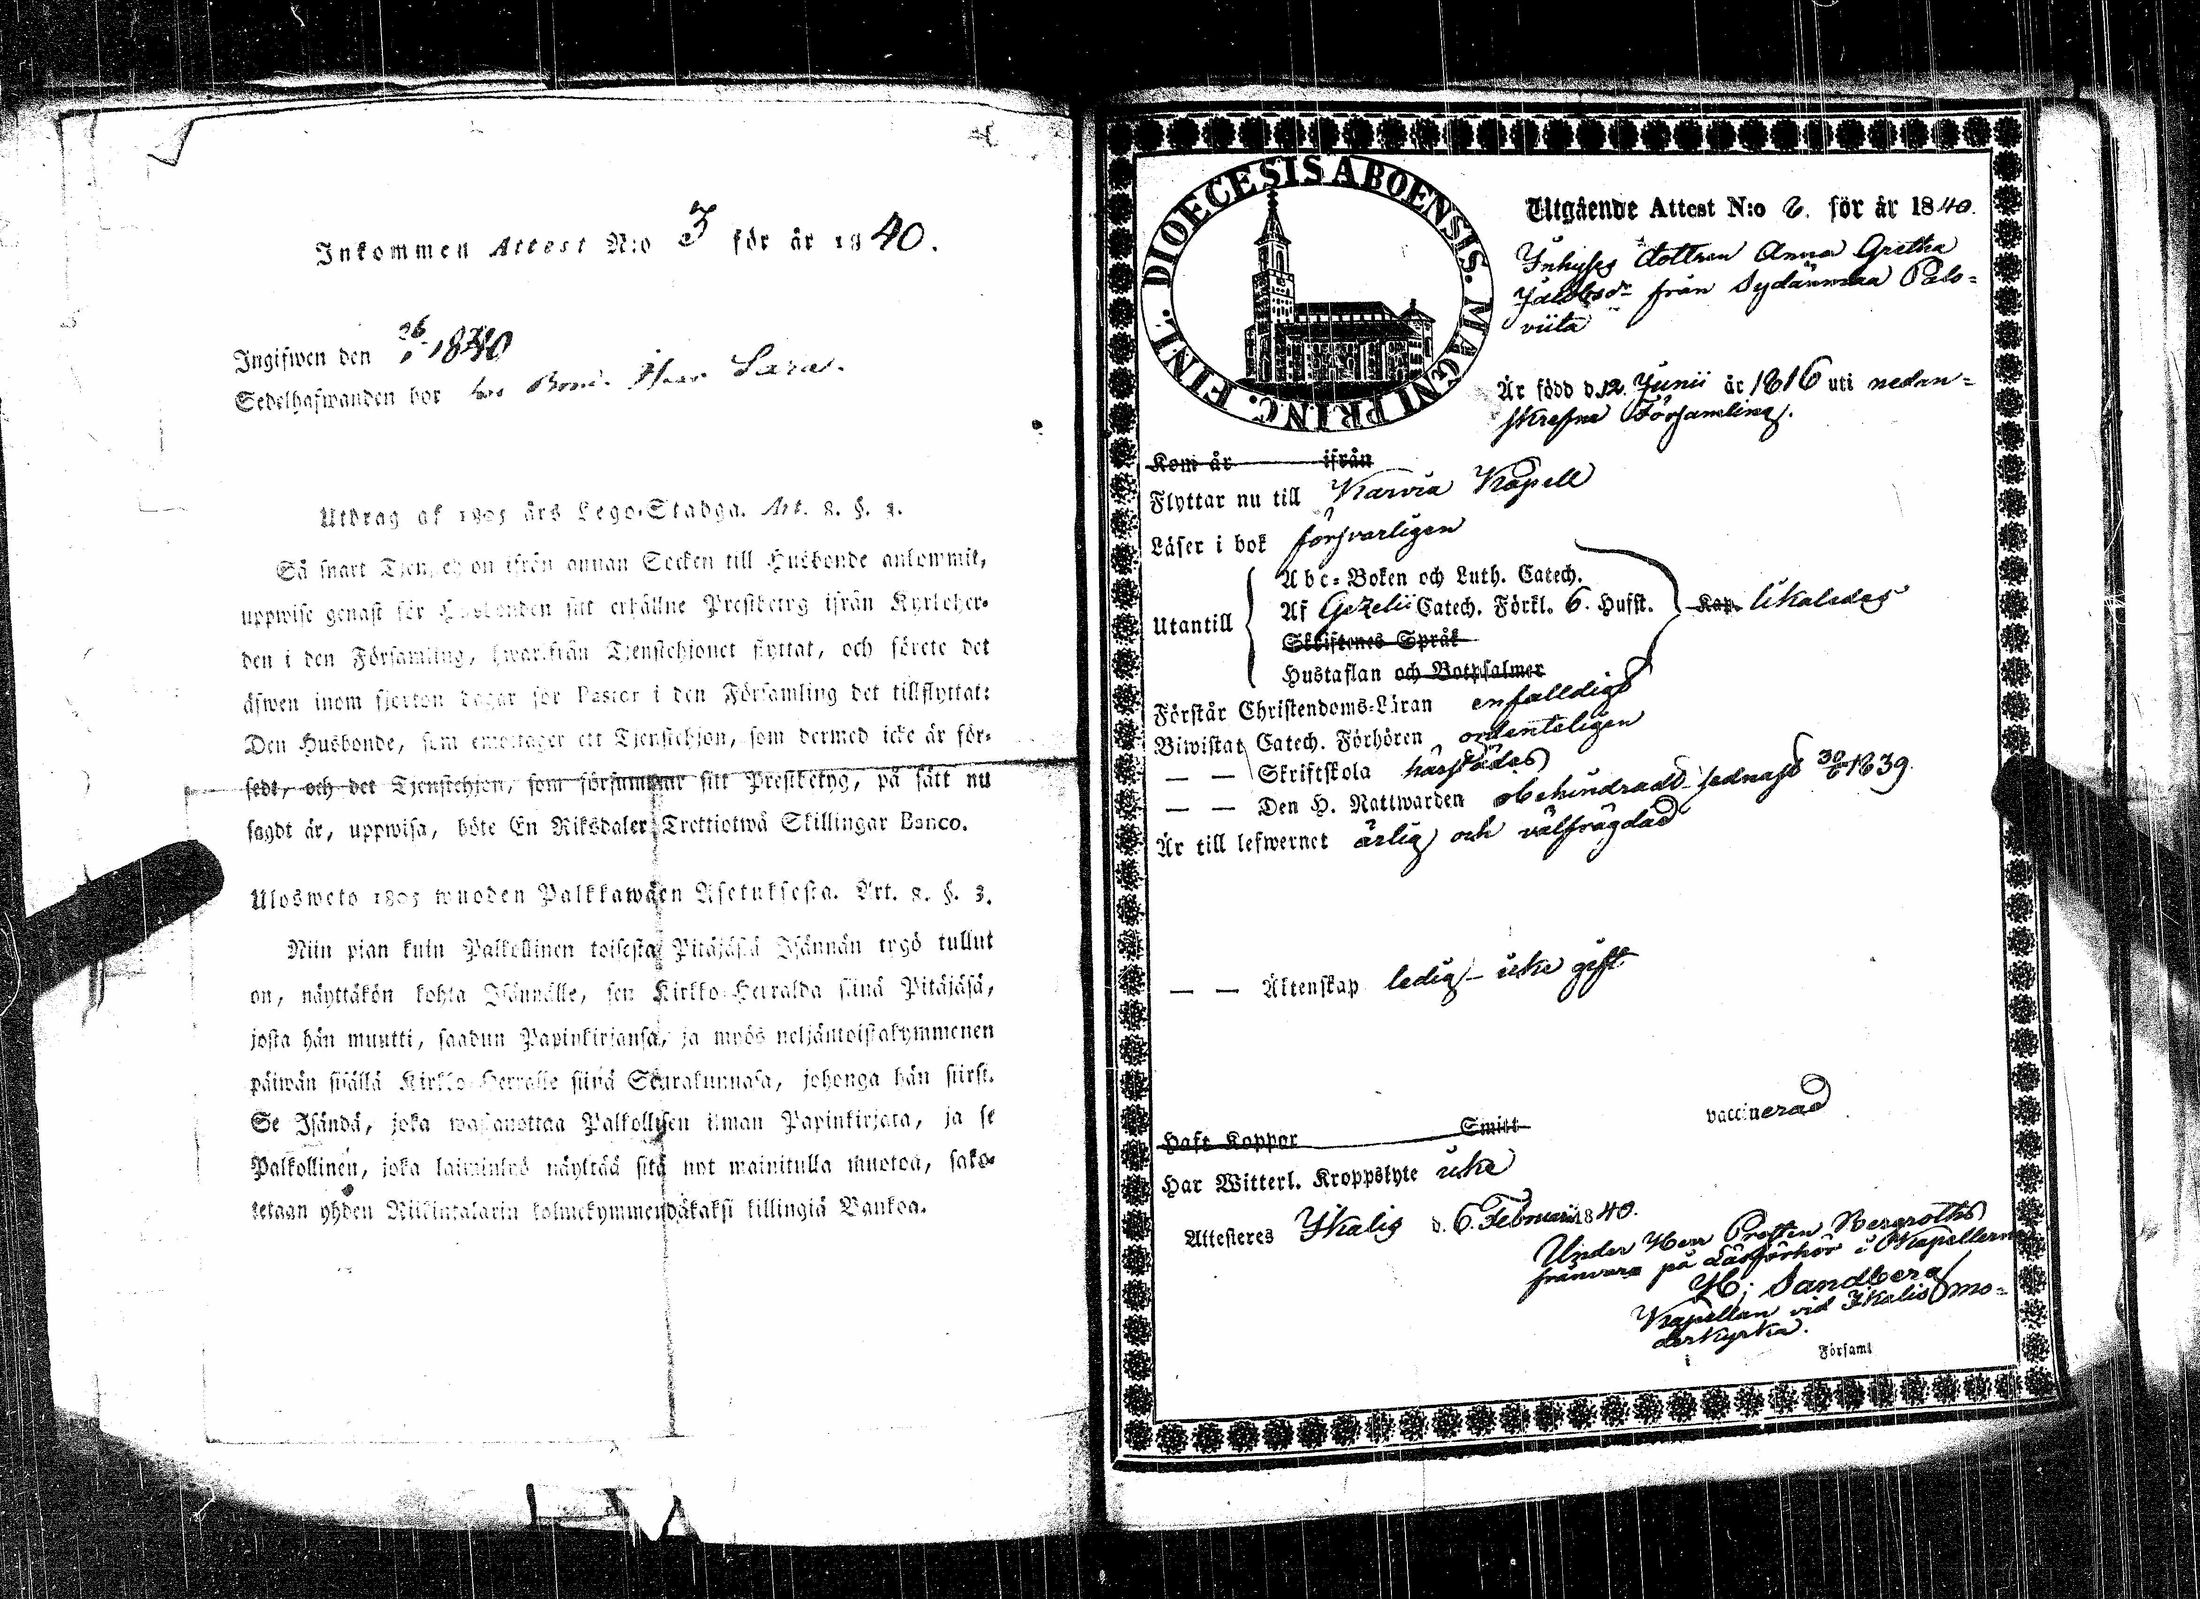 Inkommen Attest N:o 3 för år 1840.
Ingifwen den 1840
Sedelhafwanden bor hos Sara.
Utdrag af 1805 års Lego-Stadga. Art. 8. §. 3.
Så snart Tjenstehjon ifrån annan Socken till Husbonde ankommit,
uppwise genast för Husbonden sitt erhållne Prestbetyg ifrån Kyrkoher-
den i den Församling, hwarifrån Tjenstehjonet flyttat, och förete det
äfwen inom fjorton dagar för Pastor i den Församling det tillflyttat:
Den Husbonde, som emottager ett Tjenstehjon, som dermed icke är för-
sedt, och det Tjenstehjon, som försummar sitt Prestbetyg, på sätt nu
sagdt är, uppwisa, böte En Riksdaler Trettiotwå Skillingar Banco.
Ulosweto 1805 wuoden Palkkawäen Asetuksesta. Art. 8. §. 3.
Niin pian kuin Palkollinen toisesta Pitäjästä Isännän tygö tullut
on, näyttäkön kohta Isännälle, sen Kirkko-Herralda siinä Pitäjäsä,
josta hän muutti, saadun Papinkirjansa, ja myös neljäntoistakymmenen
päiwän sisällä Kirkko-Herralle siinä Seurakunnasa, johonga hän siirsi.
Se Isändä, joka wastanottaa Palkollisen ilman Papinkirjata, ja se
Palkollinen, joka laiminlyö näyttää sitä nyt mainitulla muotoa, sako-
tetaan yhden Riikintalarin kolmekymmendäkaksi killingiä Bankoa.
DIOECESIS ABOENSIS. MAGNI PRINC. FINL.
Utgående Attest N:o 2. för år 1840.
Inhyses dottren Anna Gretha
Jacobsdr från Sydänmaa Palo-
viita
Är född d. 12. Junii år 1816 uti nedan-
skrefne Församling.
Kom år ifrån
Flyttar nu till Karvia Kapell
Läser i bok försvarligen
Utantill
Abc-Boken och Luth. Catech.
Af Gezelii Catech. Förkl. 6. Hufst. Kap. likaledes
Skriftenes Språk
Hustaflan och Botpsalmer
Förstår Christendoms-Läran enfalldigt
Biwistat Catech. Förhören ordenteligen
— — Skriftskola härstädes
— — Den H. Nattwarden obehindradt sednast 30/6 1839.
Är till lefwernet ärlig och välfrägdad
— — Äktenskap ledig – icke gift
Haft Koppor Smitt vaccinerad
Har Witterl. Kroppslyte icke
Attesteres Ikalis d. 6. Februari 1840.
Under Herr Prosten Bergroths
frånvaro på Läsförhör i Kapellerne
H: Sandberg
Kapellan vid Ikalis mo-
derkyrka.
i Församl